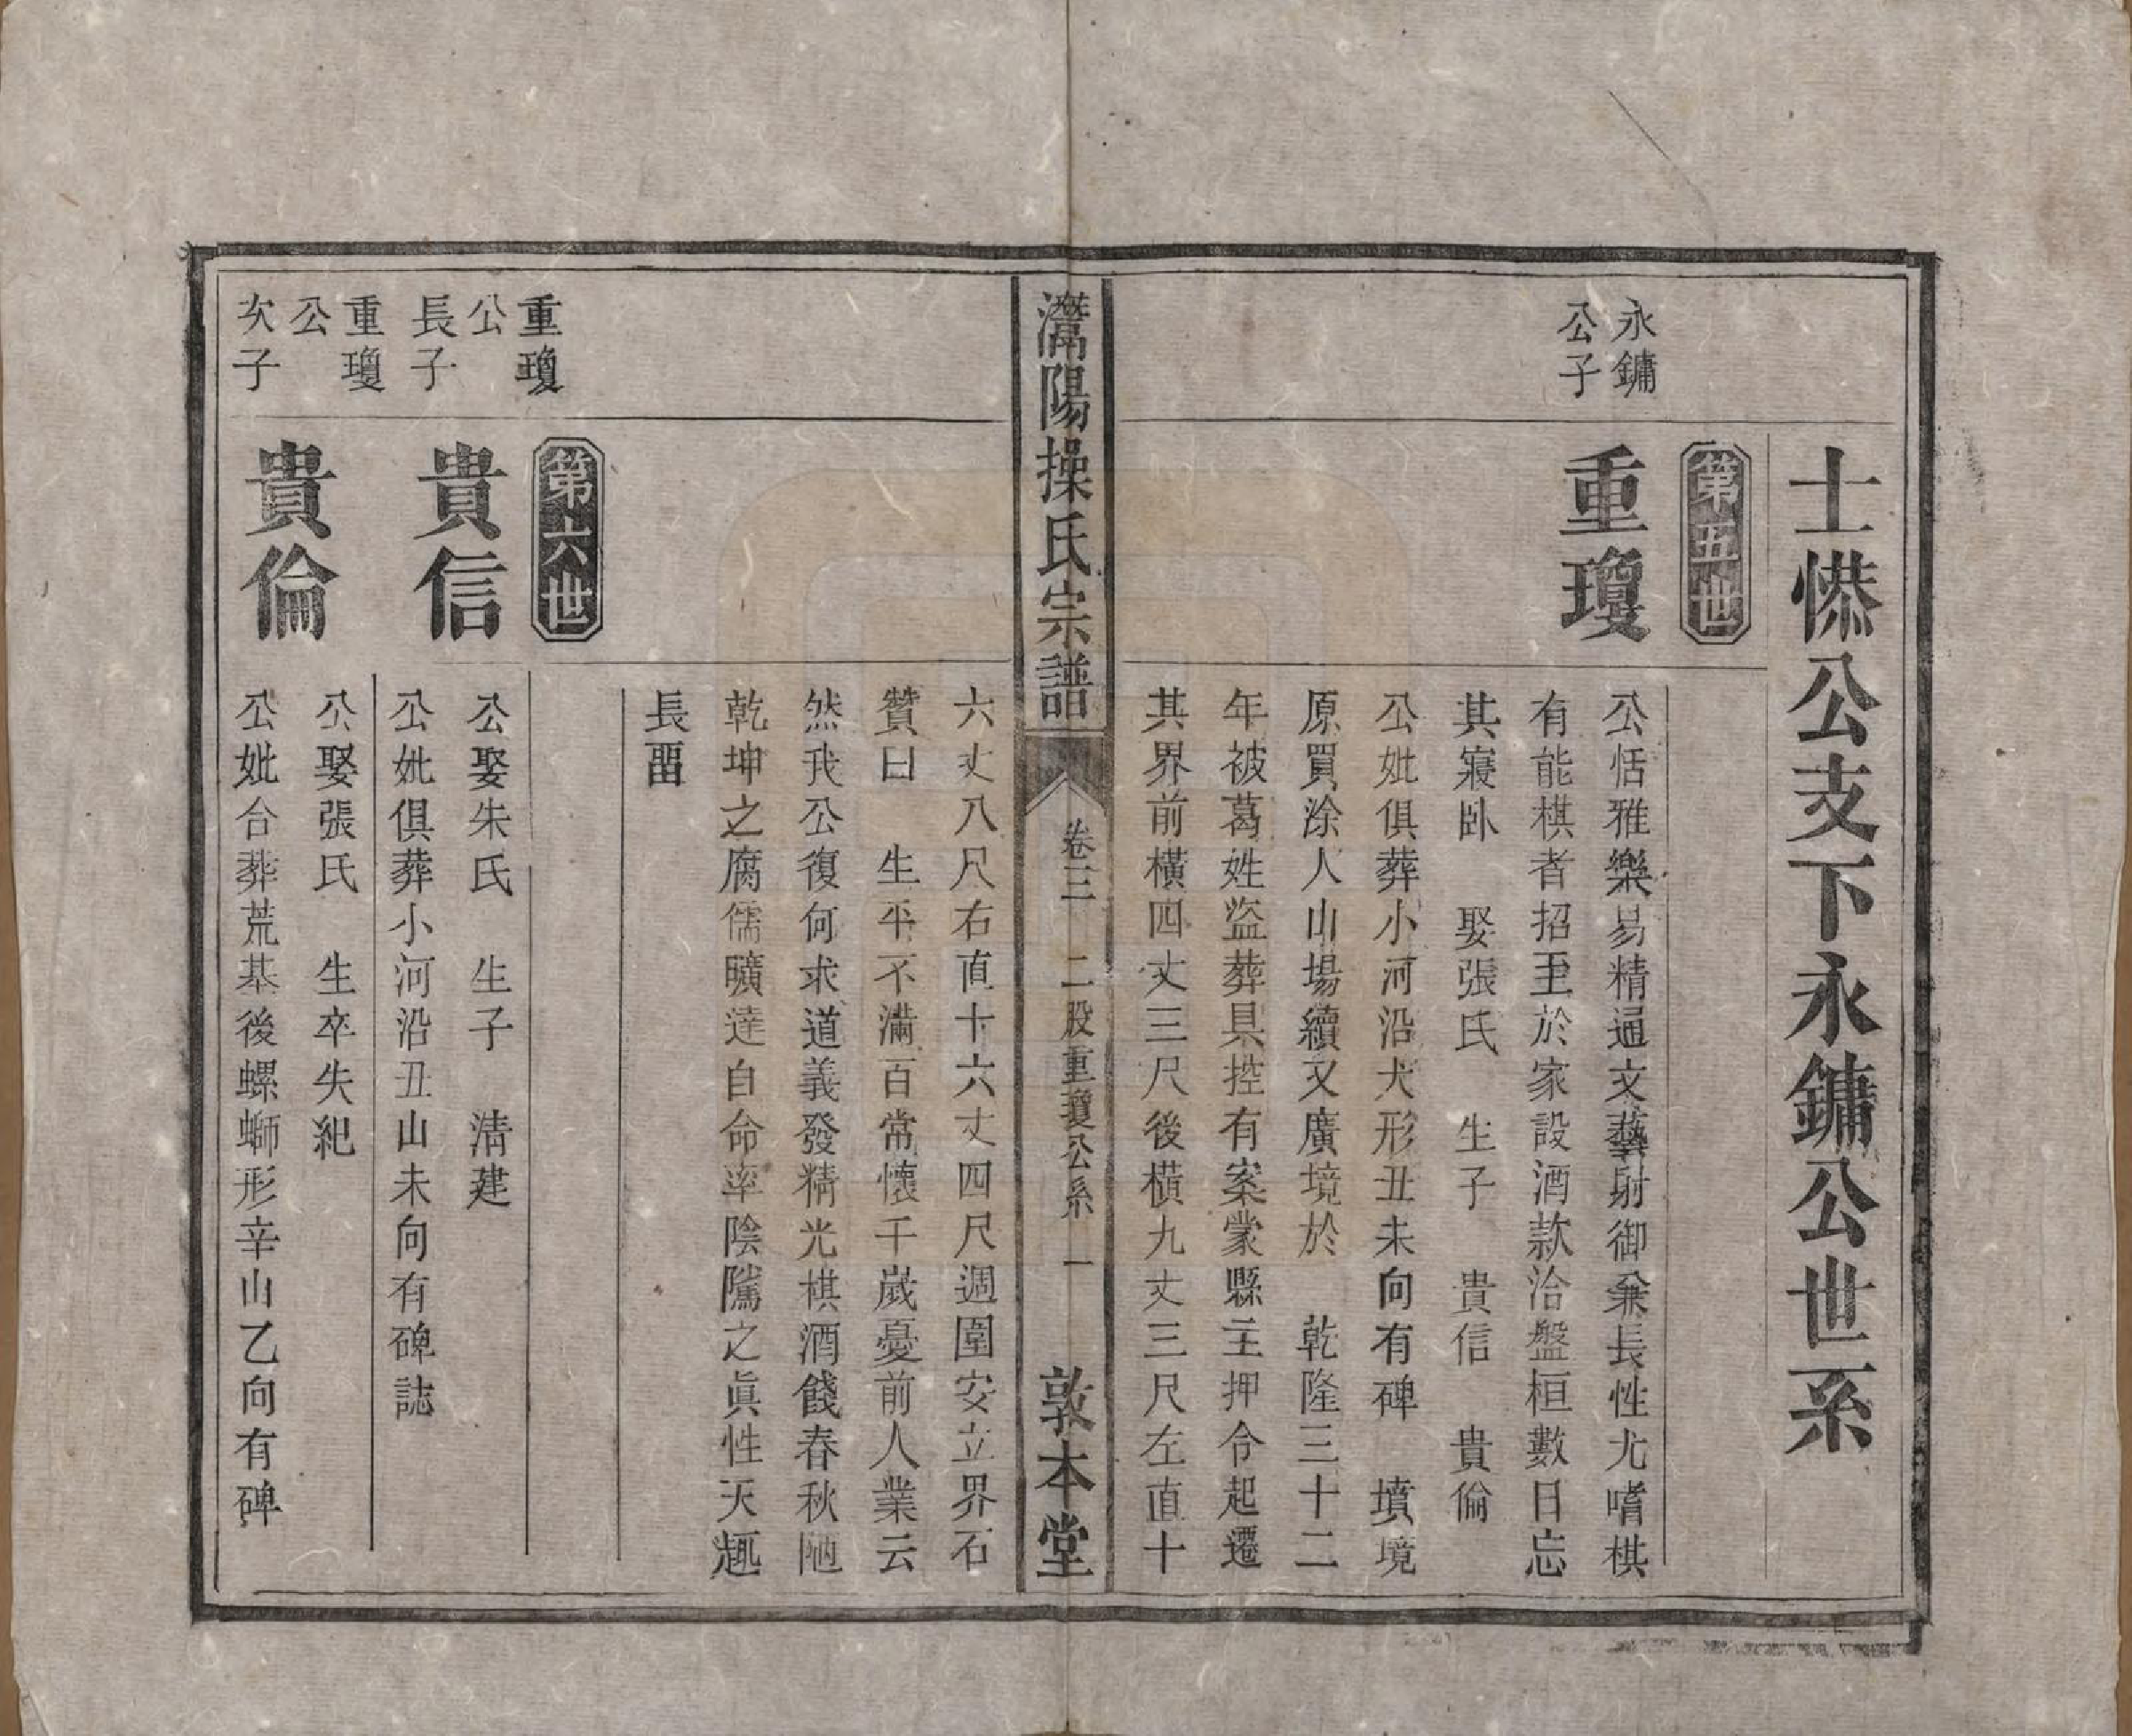 士㦂公支下永鏞公世系
第五世
永鏞
公子
重瓊
公恬雅樂易精通文藝射御兼長性尤嗜棋
有能棋者招至於家設酒款洽盤桓數日忘
其寢卧　娶張氏　生子　貴信　貴倫
公妣俱葬小河沿犬形丑未向有碑　墳境
原買涂人山場續又廣境於　乾隆三十二
年被葛姓盜葬具控有案蒙縣主押令起遷
其界前橫四丈三尺後橫九丈三尺左直十
灊陽操氏宗譜　卷三　二股重瓊公系　一　敦本堂
六丈八尺右直十六丈四尺週圍安立界石
贊曰　生平不滿百常懷千嵗憂前人業云
然我公復何求道義發精光棋酒餞春秋陋
乾坤之腐儒曠達自命率陰隲之眞性天趣
長畱
第六世
重瓊
公
長子
貴信
公娶朱氏　生子　清建
公妣俱葬小河沿丑山未向有碑誌
重瓊
公
次子
貴倫
公娶張氏　生卒失紀
公妣合葬荒基後螺螄形辛山乙向有碑